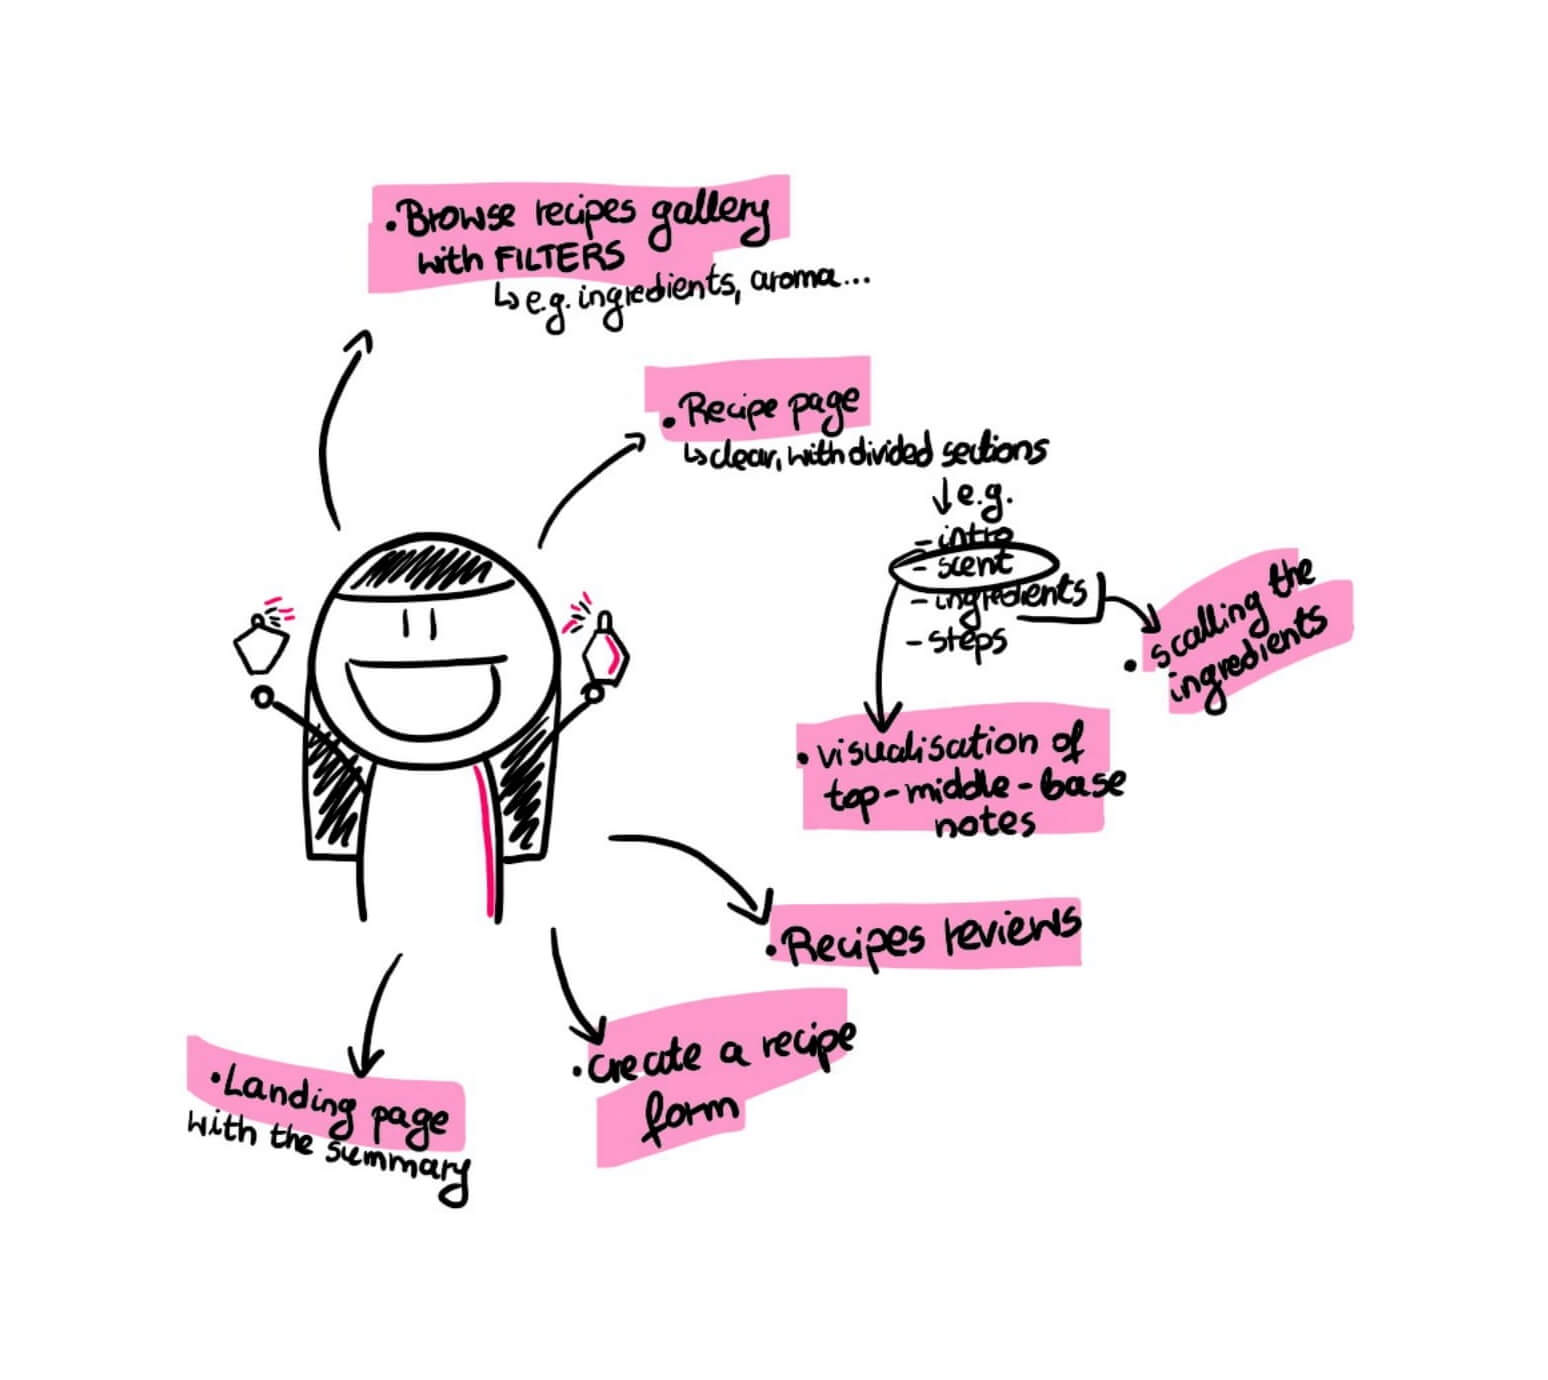 • Browse recipes gallery
with FILTERS
↳ e.g. ingredients, aroma...
• Recipe page
↳ clear, with divided sections
↓ e.g.
- intro
- scent
- ingredients
- steps
• scalling the
ingredients
• visualisation of
top - middle - base
notes
• Recipes reviews
• create a recipe
form
• Landing page
with the summary